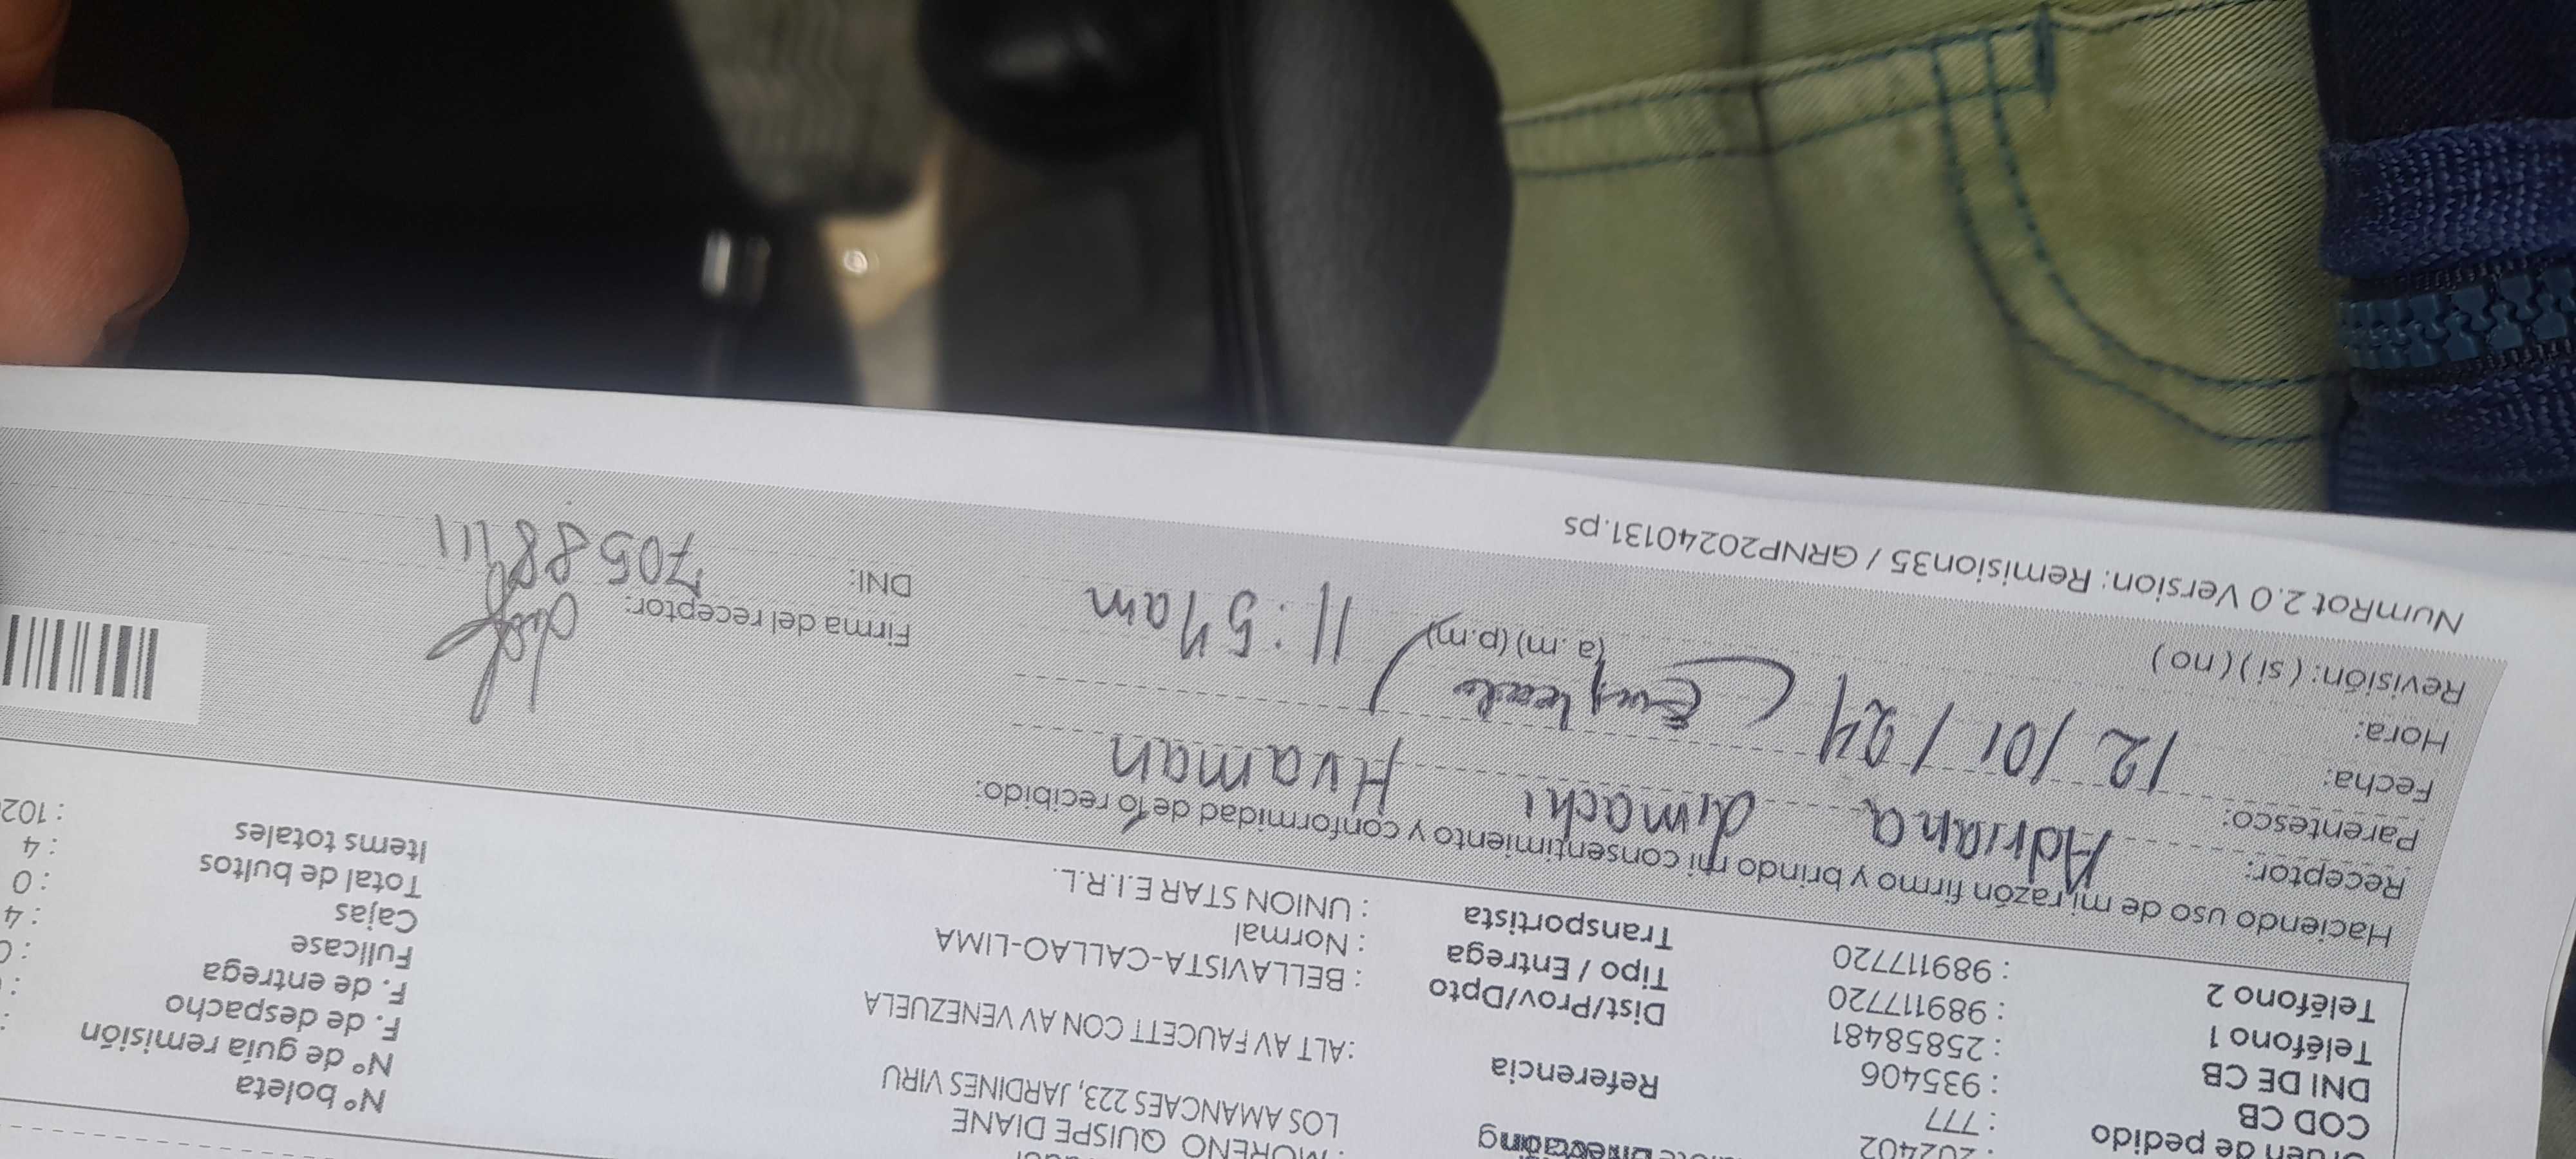 Orden de pedido : 202402
COD CB : 777
DNI DE CB : 935406
Teléfono 1 : 25858481
Teléfono 2 : 989117720
: 989117720
: MORENO QUISPE DIANE
LOS AMANCAES 223, JARDINES VIRU
Referencia : ALT AV FAUCETT CON AV VENEZUELA
Dist/Prov/Dpto : BELLAVISTA-CALLAO-LIMA
Tipo / Entrega : Normal
Transportista : UNION STAR E.I.R.L.
N° boleta
N° de guía remisión :
F. de despacho :
F. de entrega :
Fullcase : 4
Cajas : 0
Total de bultos : 4
Items totales : 102
Haciendo uso de mi razón firmo y brindo mi consentimiento y conformidad de lo recibido:
Receptor: Adriana Limachi Huaman
Parentesco: (Empleada)
Fecha: 12/01/24
Hora: (a .m) (p.m) 11:54am
Revisión: ( si ) ( no )
Firma del receptor:
DNI: 70588411
NumRot 2.0 Version: Remision35 / GRNP20240131.ps